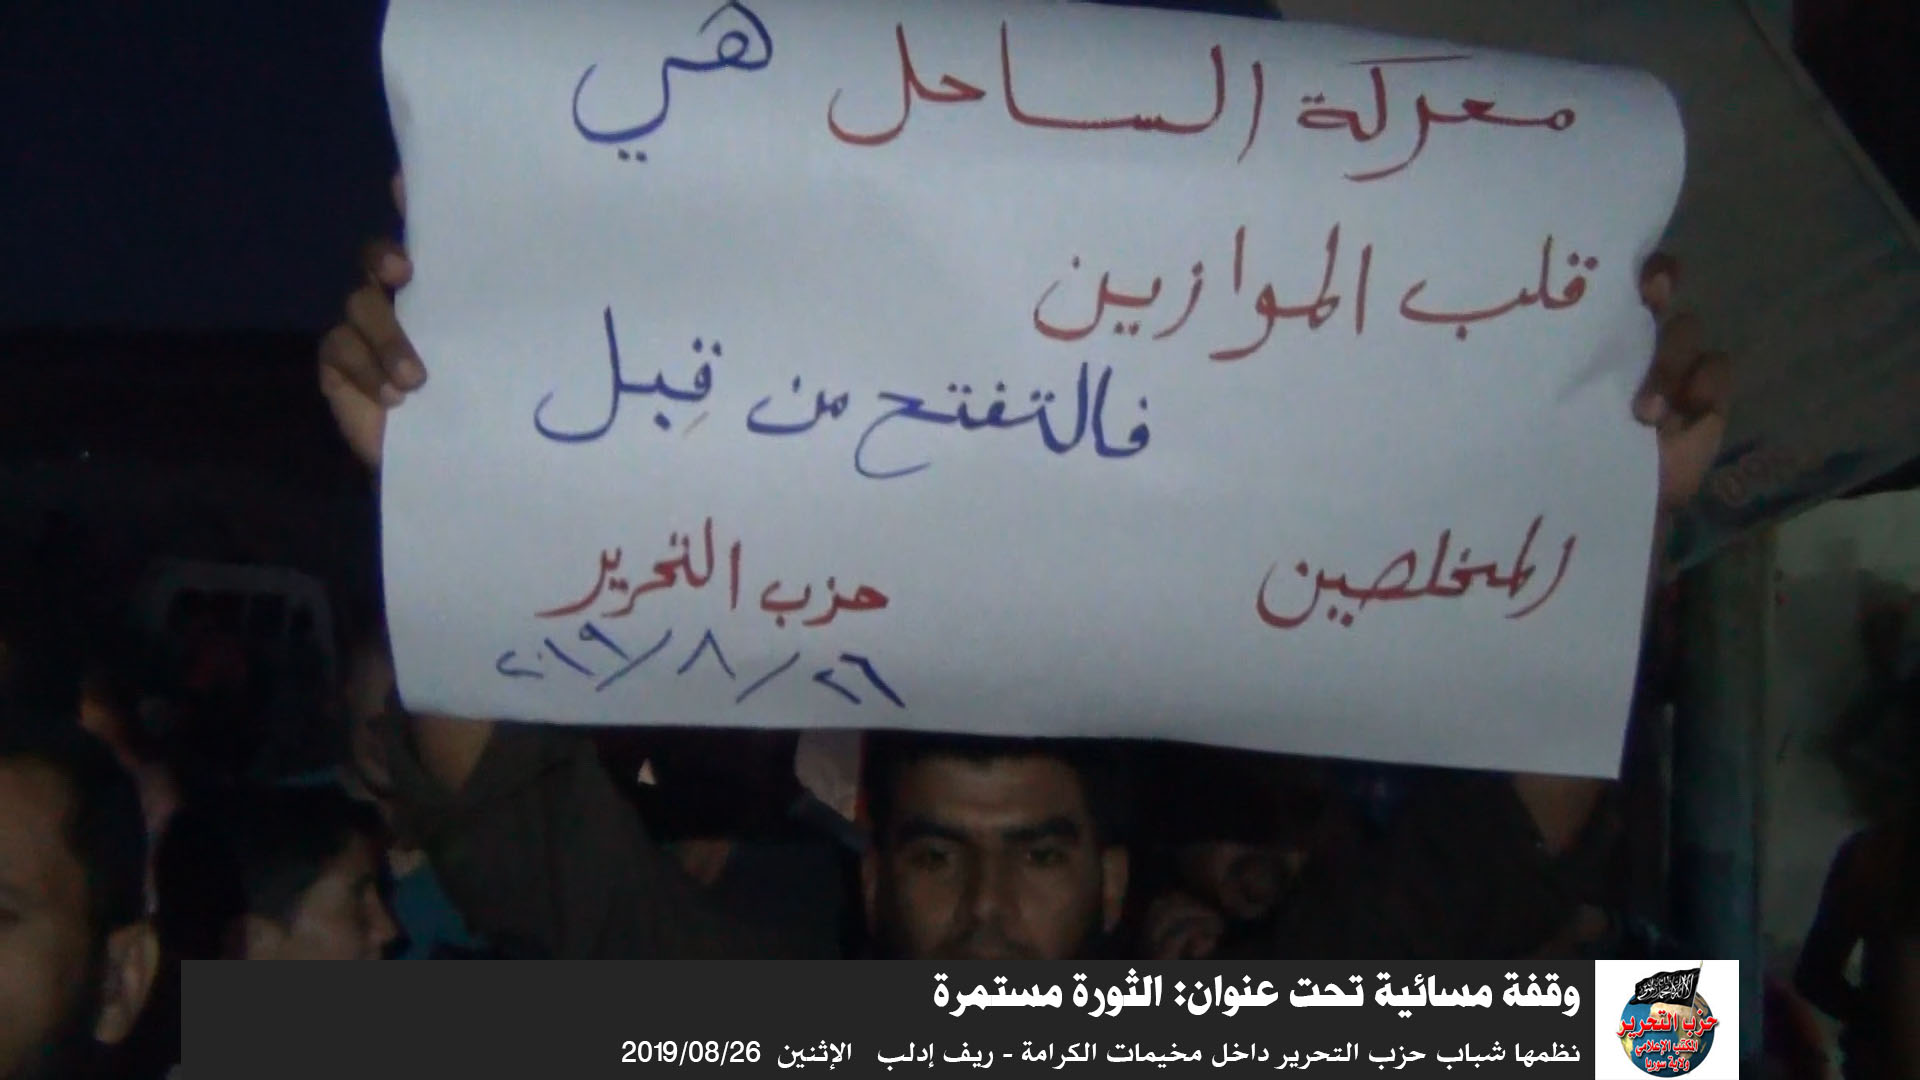 معركة الساحل هي
قلب الموازين
فالتفتح من قِبل
المخلصين
حزب التحرير
٢٠١٩/٨/٢٦
وقفة مسائية تحت عنوان: الثورة مستمرة
نظمها شباب حزب التحرير داخل مخيمات الكرامة - ريف إدلب الإثنين 2019/08/26
حزب التحرير
المكتب الإعلامي
ولاية سوريا